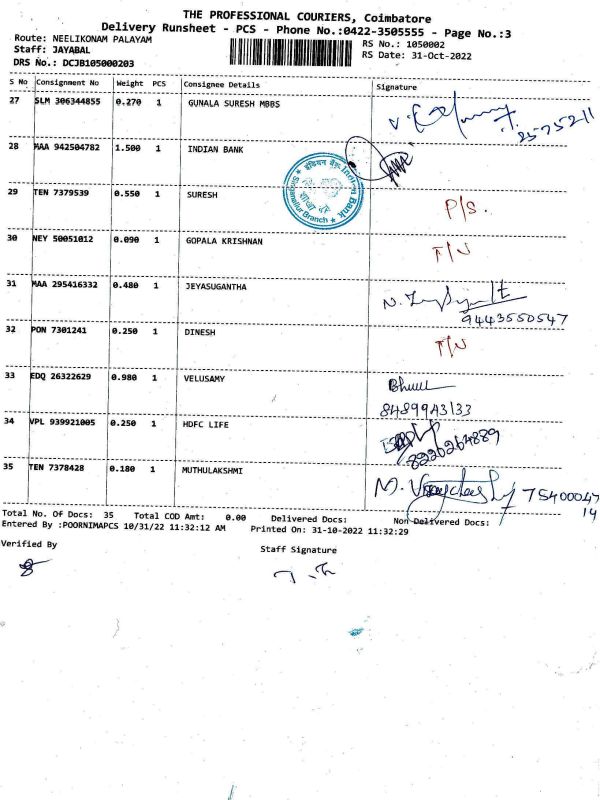 THE PROFESSIONAL COURIERS, Coimbatore
Delivery Runsheet - PCS - Phone No.:0422-3505555 - Page No.:3
Route: NEELIKONAM PALAYAM
RS No.: 1050002
Staff: JAYABAL
RS Date: 31-Oct-2022
DRS No.: DCJB105000203
S No Consignment No Weight PCS Consignee Details Signature
27 SLM 306344855 0.270 1 GUNALA SURESH MBBS
28 MAA 942504782 1.500 1 INDIAN BANK
इंडियन बैंक Indian Bank
Branch
29 TEN 7379539 0.550 1 SURESH P/S.
30 NEY 50051012 0.090 1 GOPALA KRISHNAN T/N
31 MAA 295416332 0.480 1 JEYASUGANTHA
9443550547
32 PON 7301241 0.250 1 DINESH T/N
33 EDQ 26322629 0.980 1 VELUSAMY
8489943133
34 VPL 939921005 0.250 1 HDFC LIFE
8220264889
35 TEN 7378428 0.180 1 MUTHULAKSHMI
75400047
14
Total No. Of Docs: 35 Total COD Amt: 0.00 Delivered Docs: Non Delivered Docs:
Entered By :POORNIMAPCS 10/31/22 11:32:12 AM Printed On: 31-10-2022 11:32:29
Verified By
Staff Signature